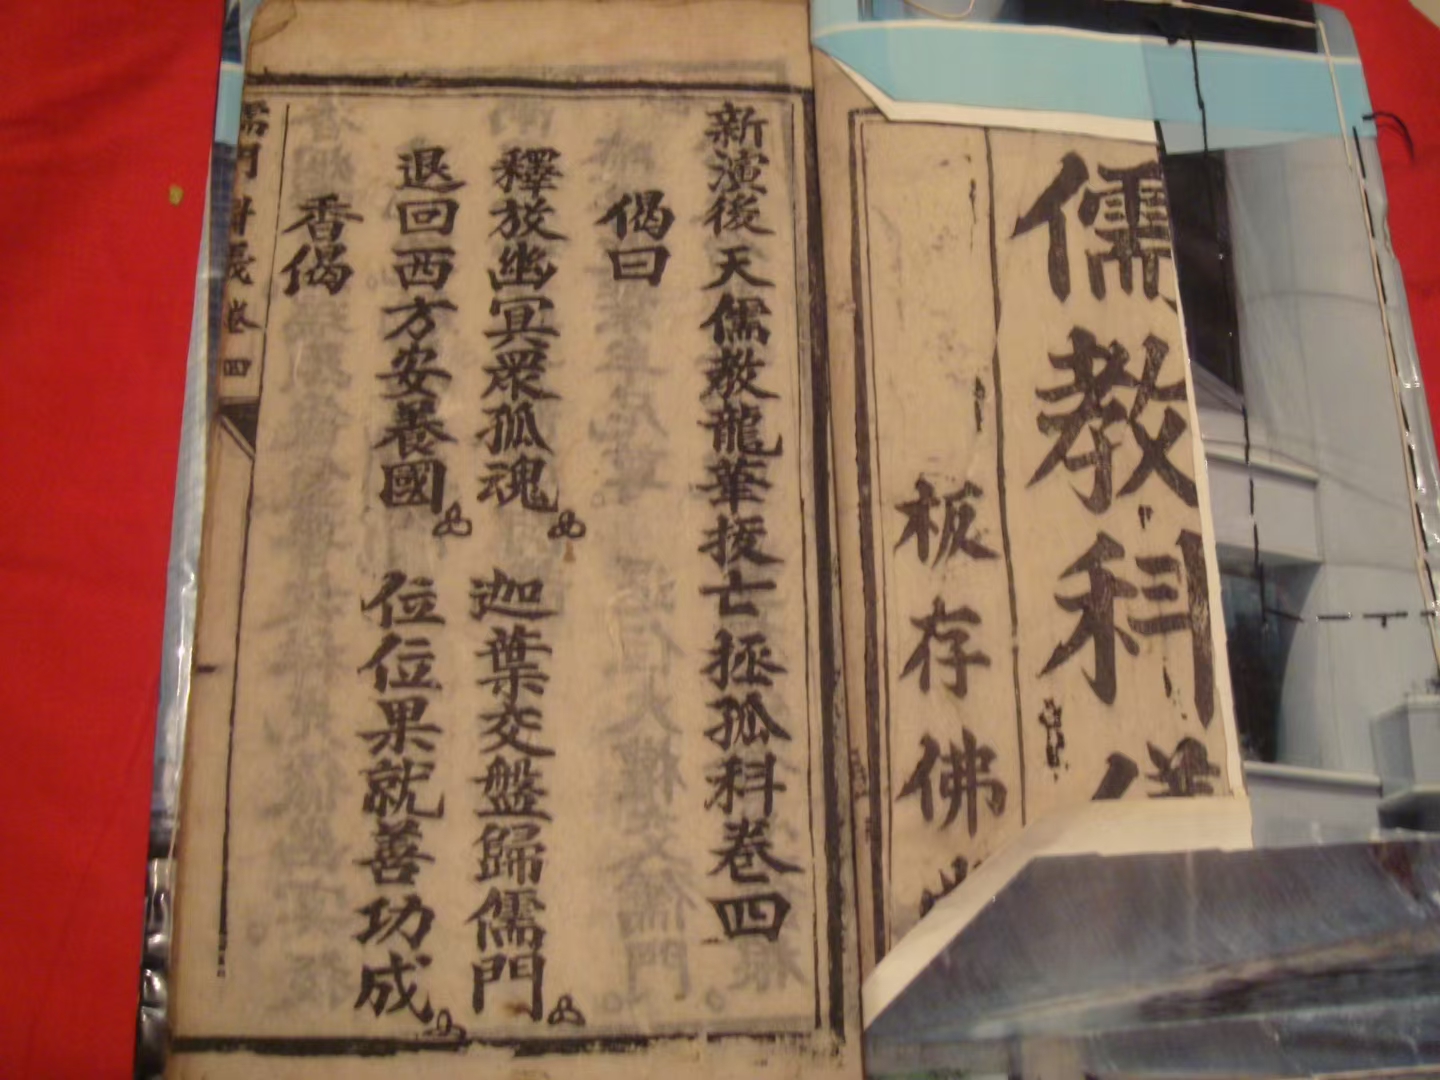 儒教科儀
板存佛
新演後天儒教龍華拔亡拯孤科卷四
偈曰
釋放幽冥眾孤魂 迦葉交盤歸儒門
退回西方安養國 位位果就善功成
香偈
儒門科義卷四